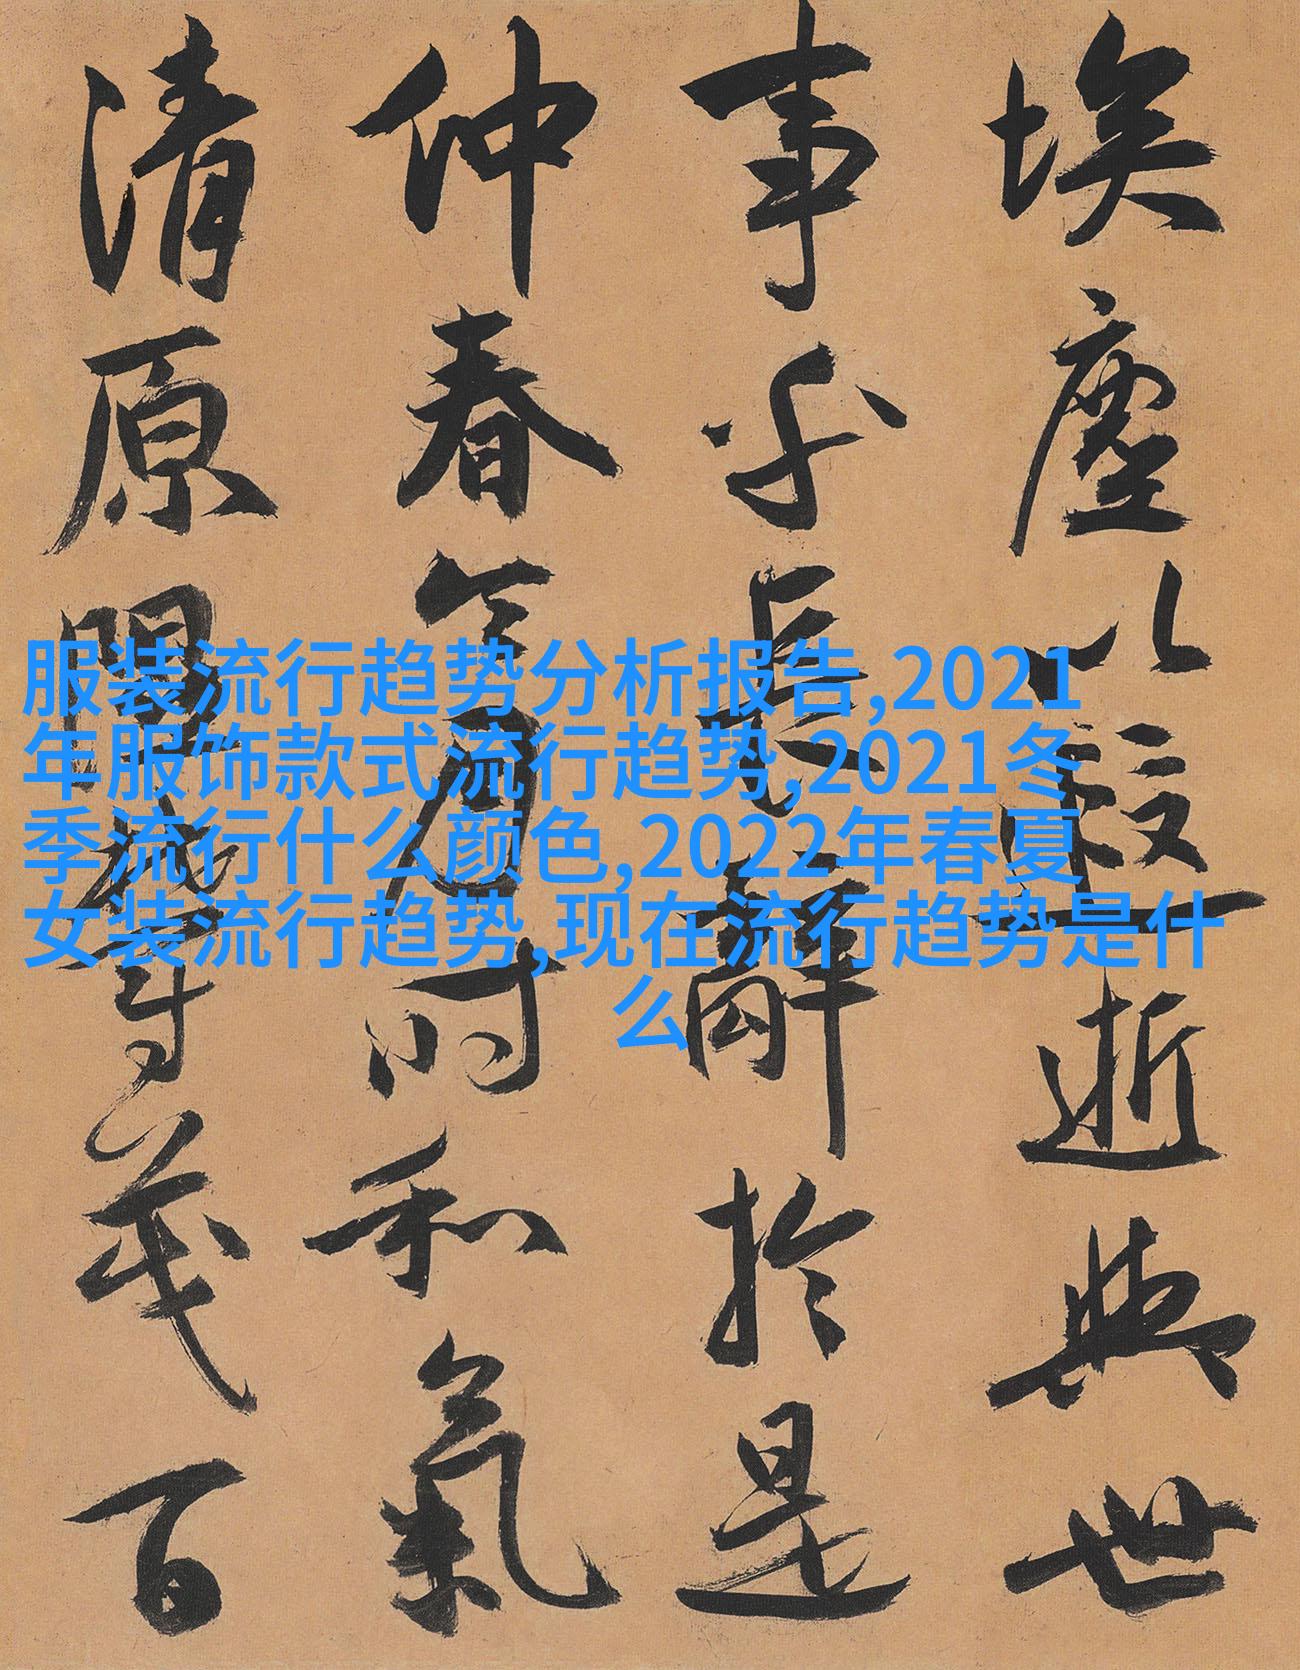 埃塵以遐逝與世
事乎長辭於是
仲春令月時和氣
清原茂百
服装流行趋势分析报告,2021
年服饰款式流行趋势,2021冬
季流行什么颜色,2022年春夏
女装流行趋势,现在流行趋势是什
么